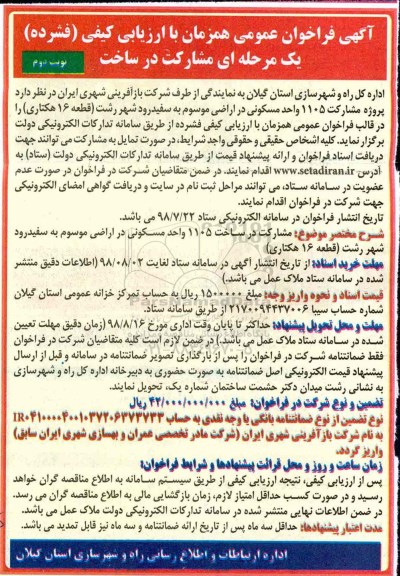 آگهی فراخوان عمومی همزمان با ارزیابی کیفی (فشرده)
یک مرحله ای مشارکت در ساخت
نوبت دوم
اداره کل راه و شهرسازی استان گیلان به نمایندگی از طرف شرکت بازآفرینی شهری ایران در نظر دارد
پروژه مشارکت ۱۱۰۵ واحد مسکونی در اراضی موسوم به سفیدرود شهر رشت (قطعه ۱۶ هکتاری) را
در قالب فراخوان عمومی همزمان با ارزیابی کیفی فشرده از طریق سامانه تدارکات الکترونیکی دولت
برگزار نماید. کلیه اشخاص حقیقی و حقوقی واجد شرایط، در صورت تمایل به مشارکت می توانند جهت
دریافت اسناد فراخوان و ارائه پیشنهاد قیمت از طریق سامانه تدارکات الکترونیکی دولت (ستاد) به
آدرس www.setadiran.ir اقدام نمایند. در ضمن متقاضیان شرکت در فراخوان در صورت عدم
عضویت در سامانه ستاد، می توانند مراحل ثبت نام در سایت و دریافت گواهی امضای الکترونیکی
جهت شرکت در فراخوان اقدام نمایند.
تاریخ انتشار فراخوان در سامانه الکترونیکی ستاد ۹۸/۷/۲۲ می باشد.
شرح مختصر موضوع: مشارکت در ساخت ۱۱۰۵ واحد مسکونی در اراضی موسوم به سفیدرود
شهر رشت (قطعه ۱۶ هکتاری)
مهلت خرید اسناد: از تاریخ انتشار آگهی در سامانه ستاد لغایت ۹۸/۰۸/۰۲ (اطلاعات دقیق منتشر
شده در سامانه ستاد ملاک عمل می باشد.)
قیمت اسناد و نحوه واریز وجه: مبلغ ۱۵۰۰۰۰۰ ریال به حساب تمرکز خزانه عمومی استان گیلان
شماره حساب سیبا ۲۱۷۰۰۹۴۴۳۷۰۰۶ از طریق سامانه ستاد.
مهلت و محل تحویل پیشنهاد: حداکثر تا پایان وقت اداری مورخ ۹۸/۸/۱۶ (زمان دقیق مهلت تعیین
شده در سامانه ستاد ملاک عمل می باشد.) در ضمن لازم است کلیه متقاضیان شرکت در فراخوان
فقط ضمانتنامه شرکت در فراخوان را پس از بارگذاری تصویر ضمانتنامه در سامانه و قبل از ارسال
پیشنهاد قیمت الکترونیکی اصل ضمانتنامه به صورت حضوری به دبیرخانه اداره کل راه و شهرسازی
به نشانی رشت میدان دکتر حشمت ساختمان شماره یک، تحویل نمایند.
تضمین و نوع شرکت در فراخوان: مبلغ ۴۲/۰۰۰/۰۰۰/۰۰۰ ریال
نوع تضمین از نوع ضمانتنامه بانکی یا وجه نقدی به حساب
به نام شرکت بازآفرینی شهری ایران (شرکت مادر تخصصی عمران و بهسازی شهری ایران سابق)
واریز گردد.
زمان ساعت و روز و محل قرائت پیشنهادها و شرایط فراخوان:
پس از ارزیابی کیفی، نتیجه ارزیابی کیفی از طریق سیستم سامانه به اطلاع مناقصه گران خواهد
رسید و در صورت کسب حداقل امتیاز لازم، زمان بازگشایی مالی به اطلاع مناقصه گران می رسد.
در ضمن اطلاعات نهایی منتشر شده در سامانه تدارکات الکترونیکی دولت ملاک عمل می باشد.
مدت اعتبار پیشنهادها: حداقل سه ماه پس از تاریخ ارائه ضمانتنامه و سه ماه نیز قابل تمدید می باشد.
اداره ارتباطات و اطلاع رسانی راه و شهرسازی استان گیلان